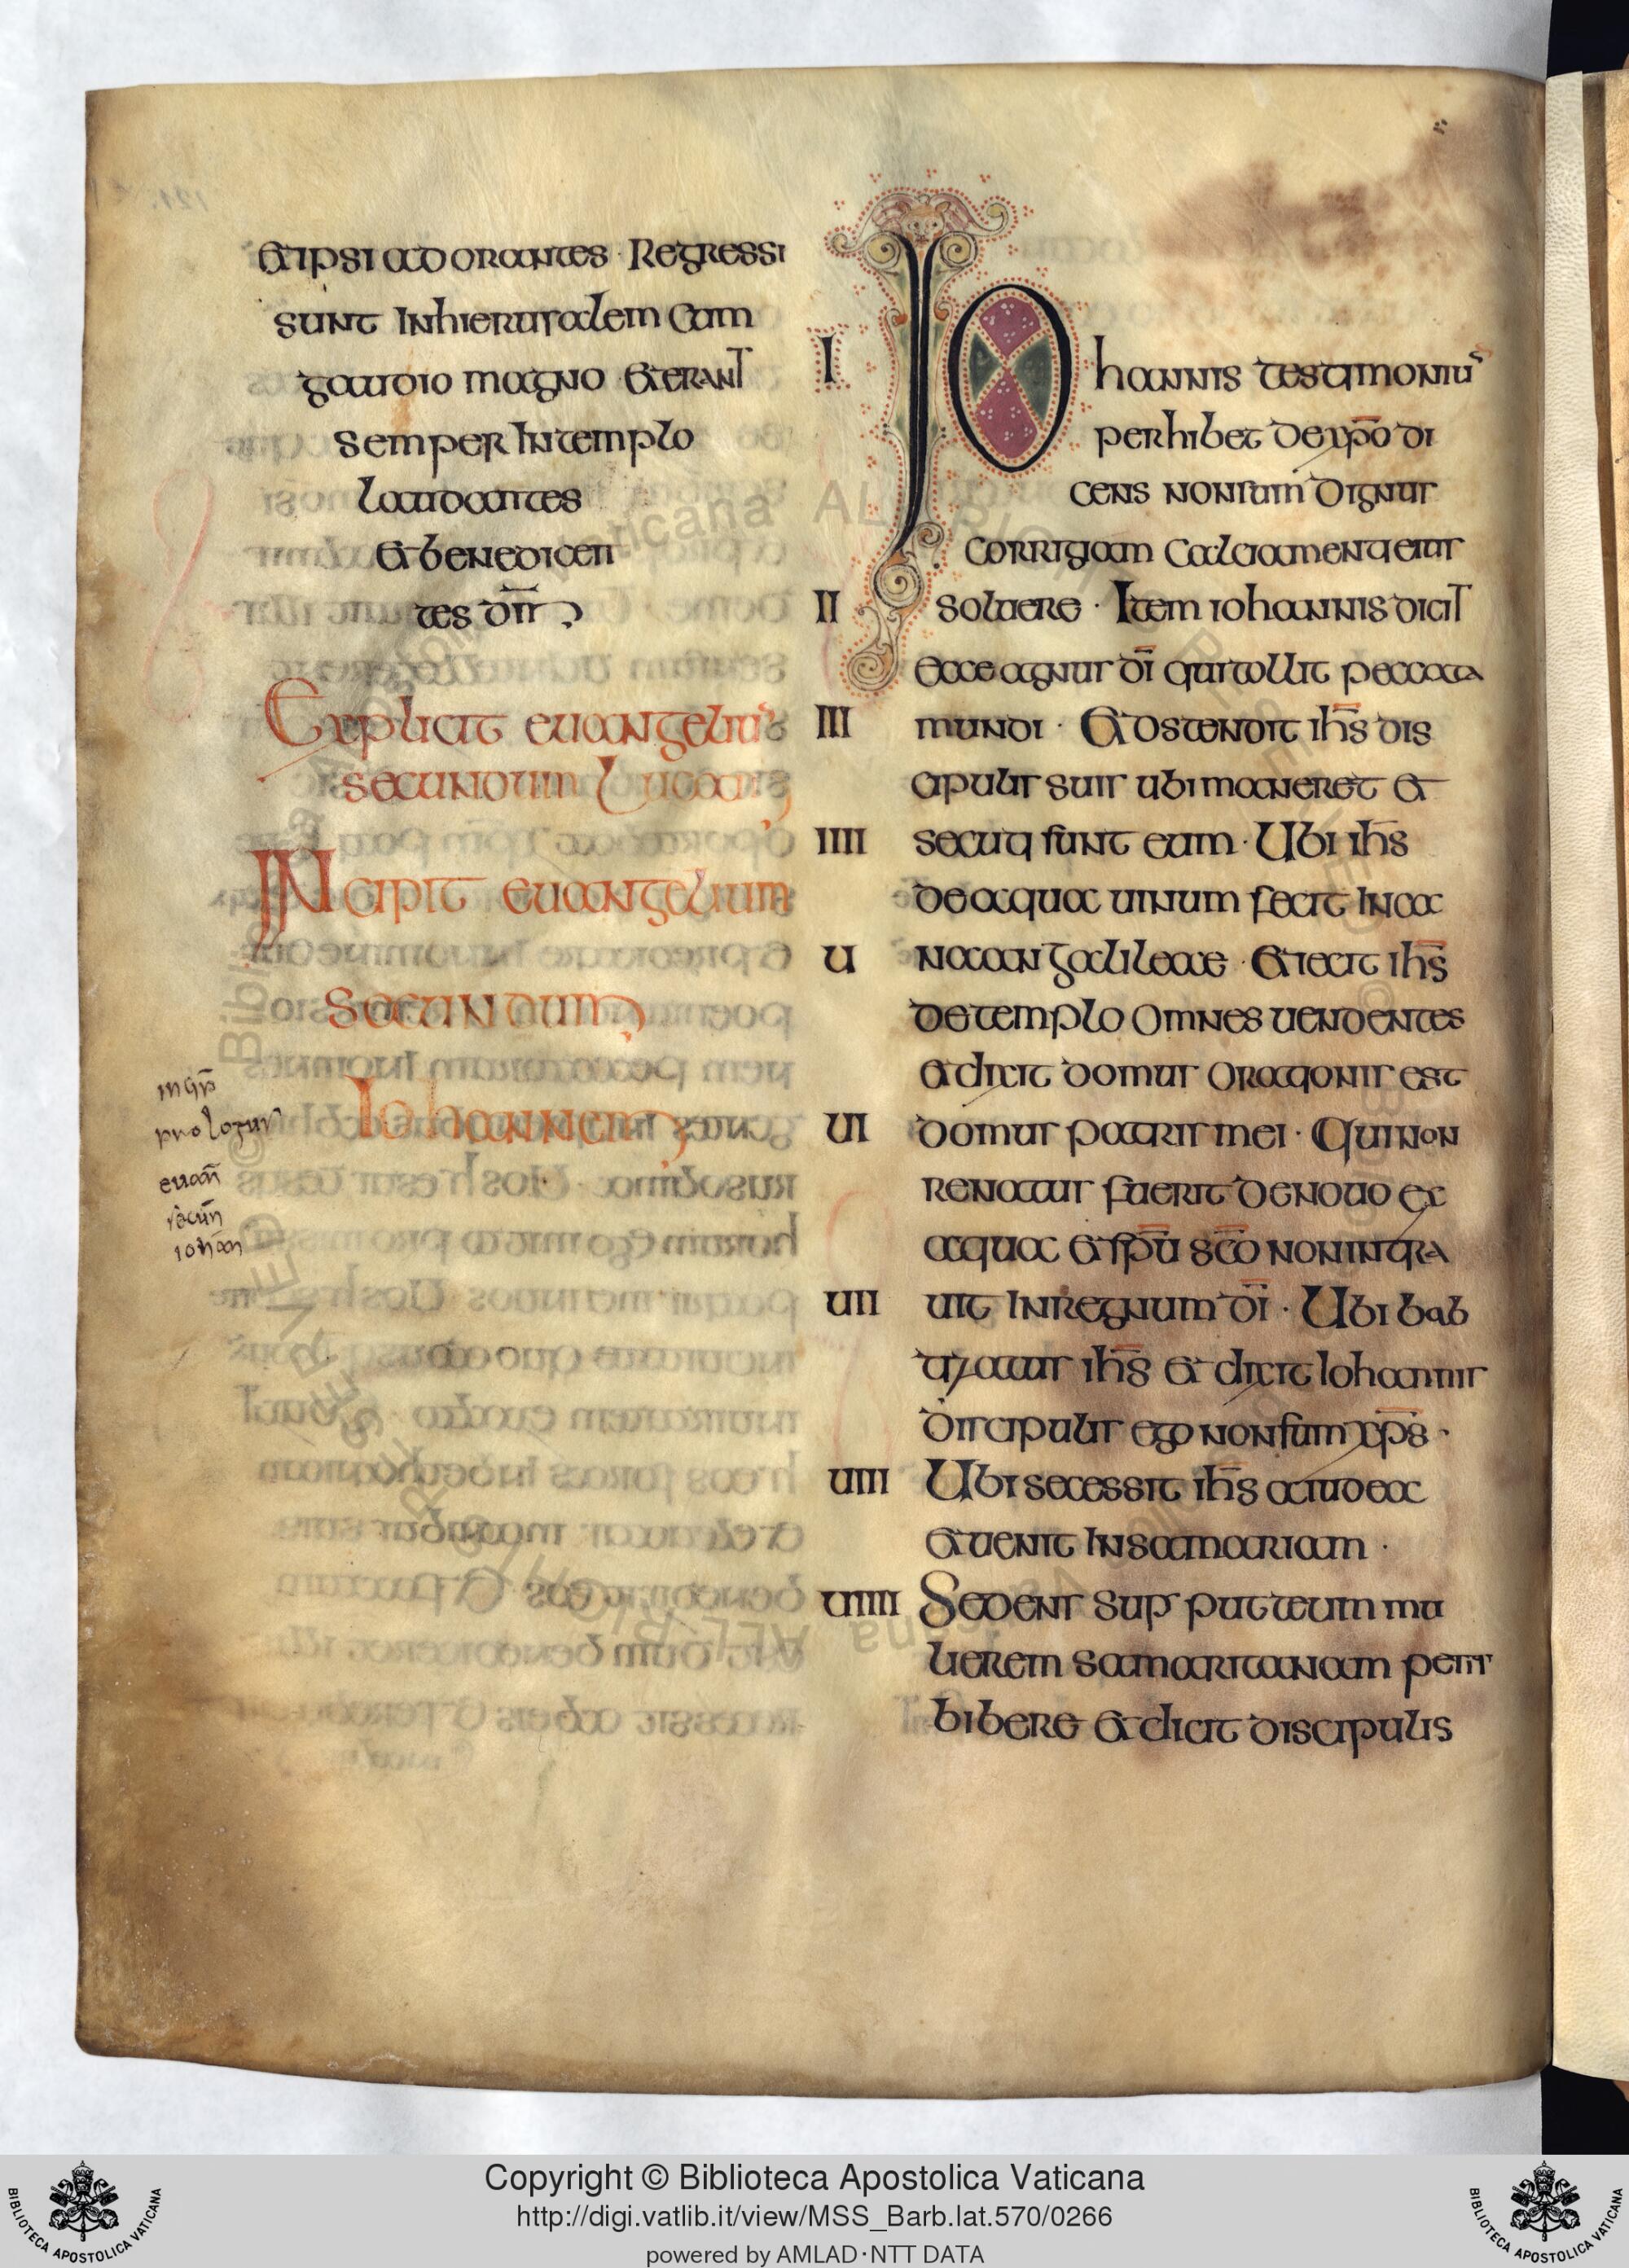 Et ipsi adorantes · Regressi
sunt Inhierusalem Cum
gaudio magno Et erant
semper Intemplo
laudantes
Et benedicen
tes dm̄
Explicit euangeliū
secundum Lucam
INcipit euangelium
Secundum
Iohannem
incip̄
prologus
euan̄
secun̄
iohan̄
I Iohannis testimoniū
perhibet dexp̄o di
cens nonsum dignus
corrigiam calciamenti eius
II soluere · Item iohannis dicit
ecce agnus dī qui tollit peccata
III mundi · Et ostendit ih̄s dis
cipulis suis ubi maneret et
IIII secuti sunt eum · Ubi ih̄s
de aqua uinum fecit In ca
U nacan galileae · Et iecit ih̄s
de templo omnes uendentes
et dixit domus orationis est
UI domus patris mei · Qui non
renatus fuerit denouo ex
aqua et sp̄u sc̄o non intra
UII uit Inregnum dī · Ubi bab
tizatus ih̄s et dixit Iohannis
discipulis ego nonsum xp̄s ·
UIII Ubi secessit ih̄s a iudea
Et uenit Insamariam ·
UIIII Sedens sup puteum mu
lierem samaritanam petit
bibere Et dicit discipulis
Copyright © Biblioteca Apostolica Vaticana
http://digi.vatlib.it/view/MSS_Barb.lat.570/0266
powered by AMLAD·NTT DATA
BIBLIOTECA APOSTOLICA VATICANA
BIBLIOTECA APOSTOLICA VATICANA